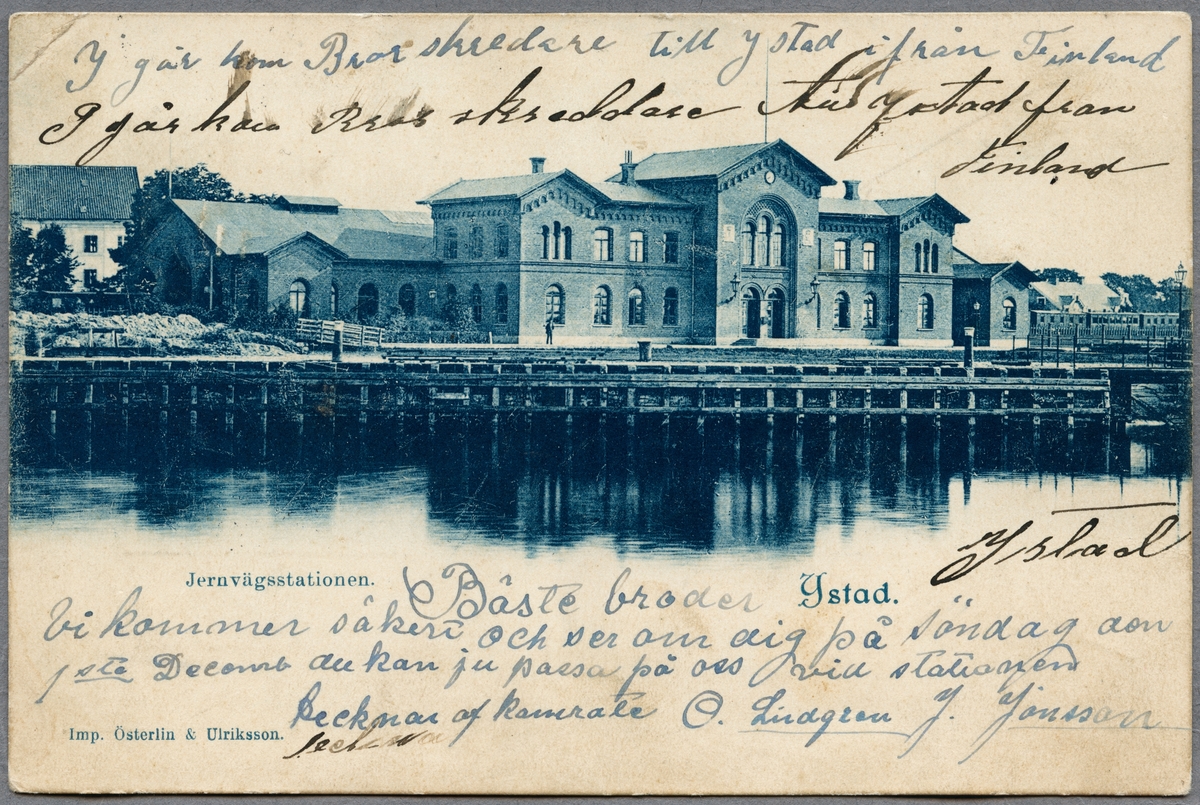 I går kom Bror skredare till Ystad ifrån Finland
I går kom Bror skreddare till Ystad från
Finland
Ystad
Jernvägsstationen.
Ystad.
Bäste broder
Vi kommer säkert och ser om dig på söndag den
1sta Decemb du kan ju passa på oss vid stationen
Tecknar af kamrate O. Lindgren J. Jönsson
Imp. Österlin & Ulriksson.